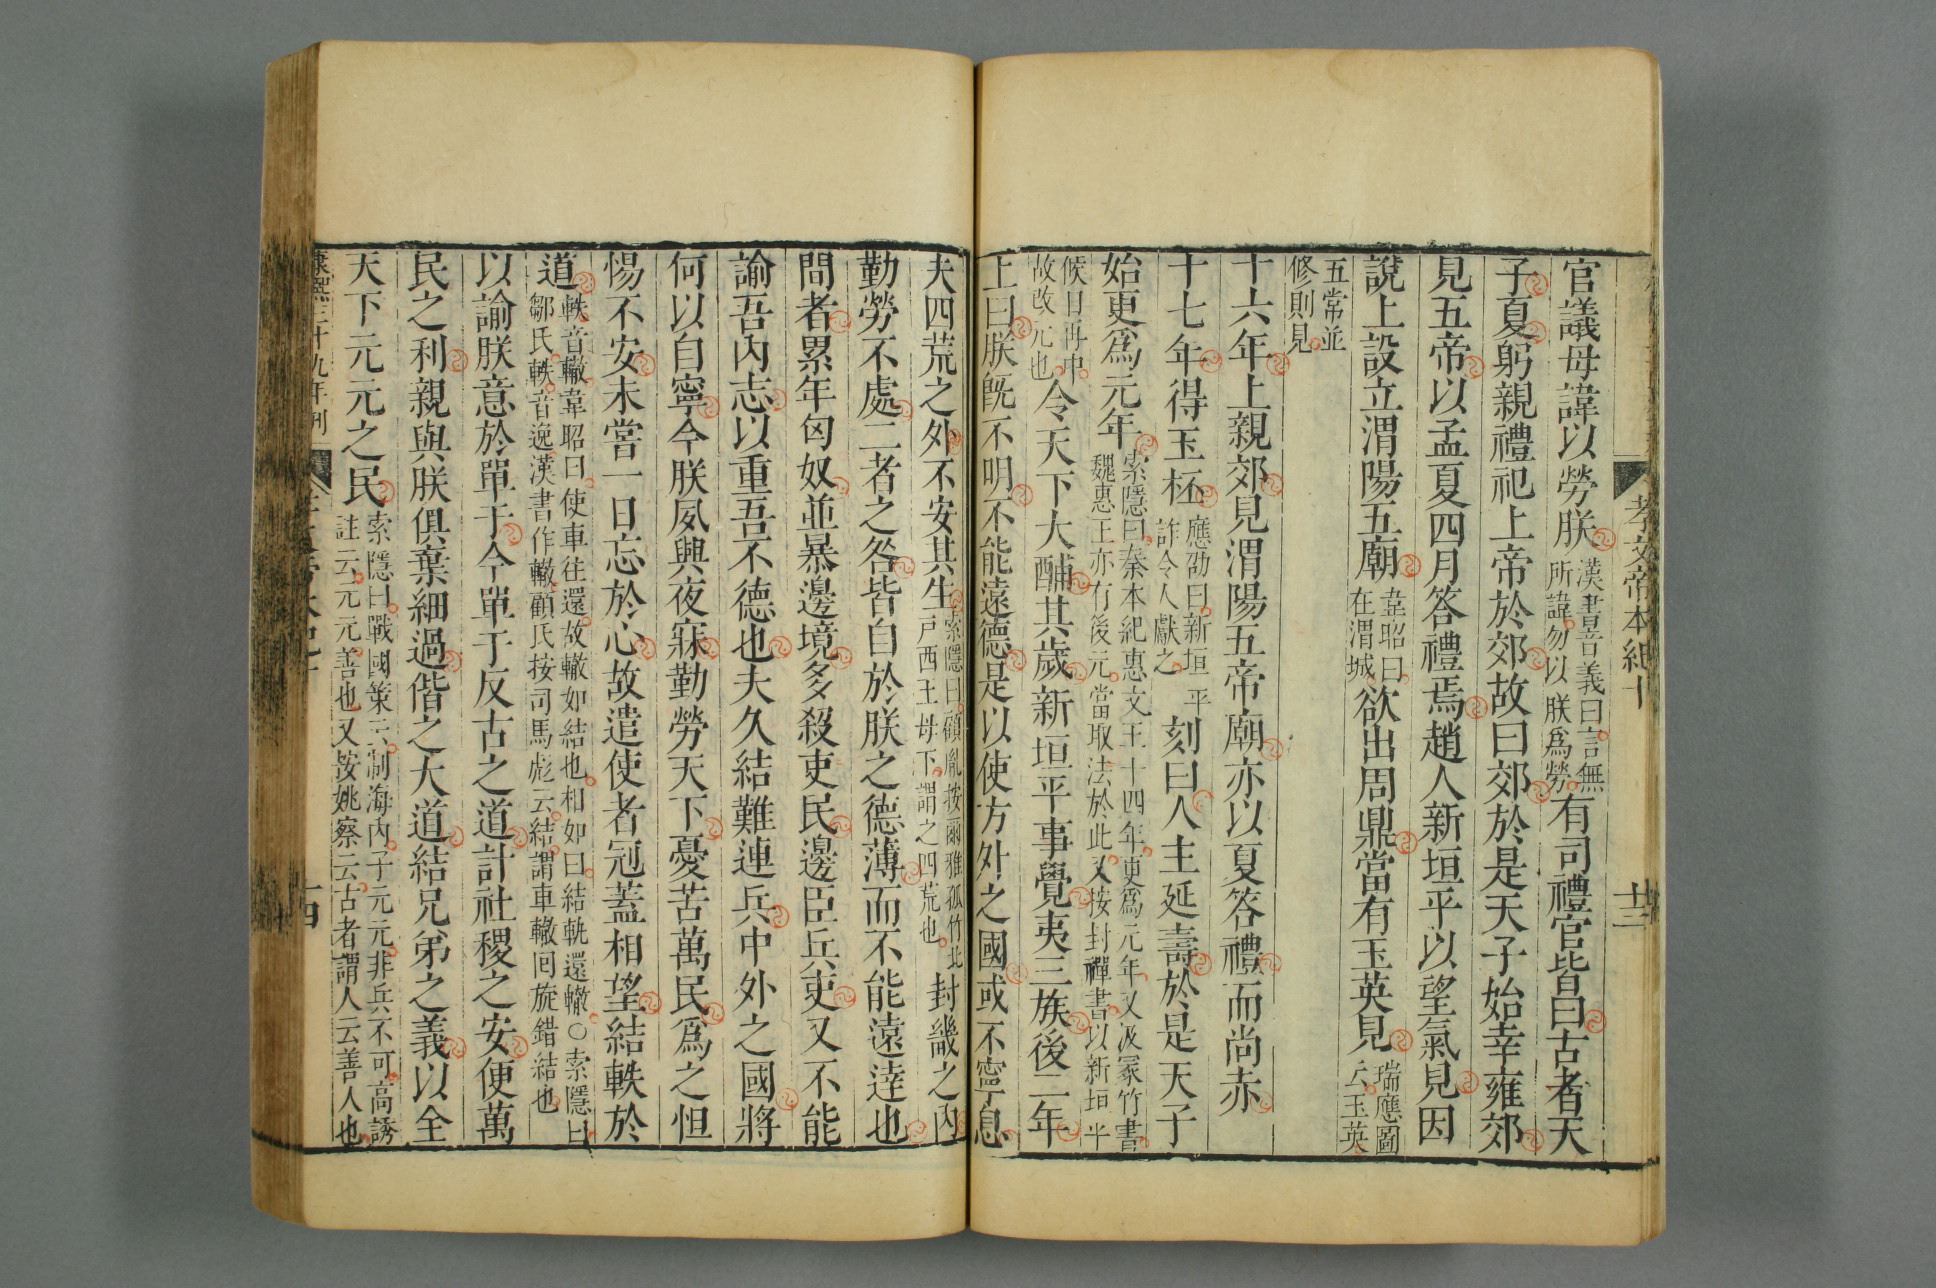 孝文帝本紀十
十三
官議毋諱以勞朕漢書音義曰言無所諱勿以朕爲勞有司禮官皆曰古者天
子夏躬親禮祀上帝於郊故曰郊於是天子始幸雍郊
見五帝以孟夏四月答禮焉趙人新垣平以望氣見因
說上設立渭陽五廟韋昭曰在渭城欲出周鼎當有玉英見瑞應圖云玉英
五常並修則見
十六年上親郊見渭陽五帝廟亦以夏答禮而尚赤
十七年得玉杯應劭曰新垣平詐令人獻之刻曰人主延壽於是天子
始更爲元年索隱曰秦本紀惠文王十四年更爲元年又汲冢竹書魏惠王亦有後元當取法於此又按封禪書以新垣平
候日再中故改元也令天下大酺其歲新垣平事覺夷三族後二年
上曰朕既不明不能遠德是以使方外之國或不寧息
夫四荒之外不安其生索隱曰顧胤按爾雅孤竹北戶西王母下謂之四荒也封畿之內
勤勞不處二者之咎皆自於朕之德薄而不能遠達也
間者累年匈奴並暴邊境多殺吏民邊臣兵吏又不能
諭吾內志以重吾不德也夫久結難連兵中外之國將
何以自寧今朕夙興夜寐勤勞天下憂苦萬民爲之怛
惕不安未嘗一日忘於心故遣使者冠蓋相望結軼於
道軼音轍韋昭曰使車往還故轍如結也相如曰結軌還轍○索隱曰鄒氏軼音逸漢書作轍顧氏按司馬彪云結謂車轍回旋錯結也
以諭朕意於單于今單于反古之道計社稷之安便萬
民之利親與朕俱棄細過偕之大道結兄弟之義以全
天下元元之民索隱曰戰國策云制海內子元元非兵不可高誘註云元元善也又按姚察云古者謂人云善人也
康熙三十九年刊
十四